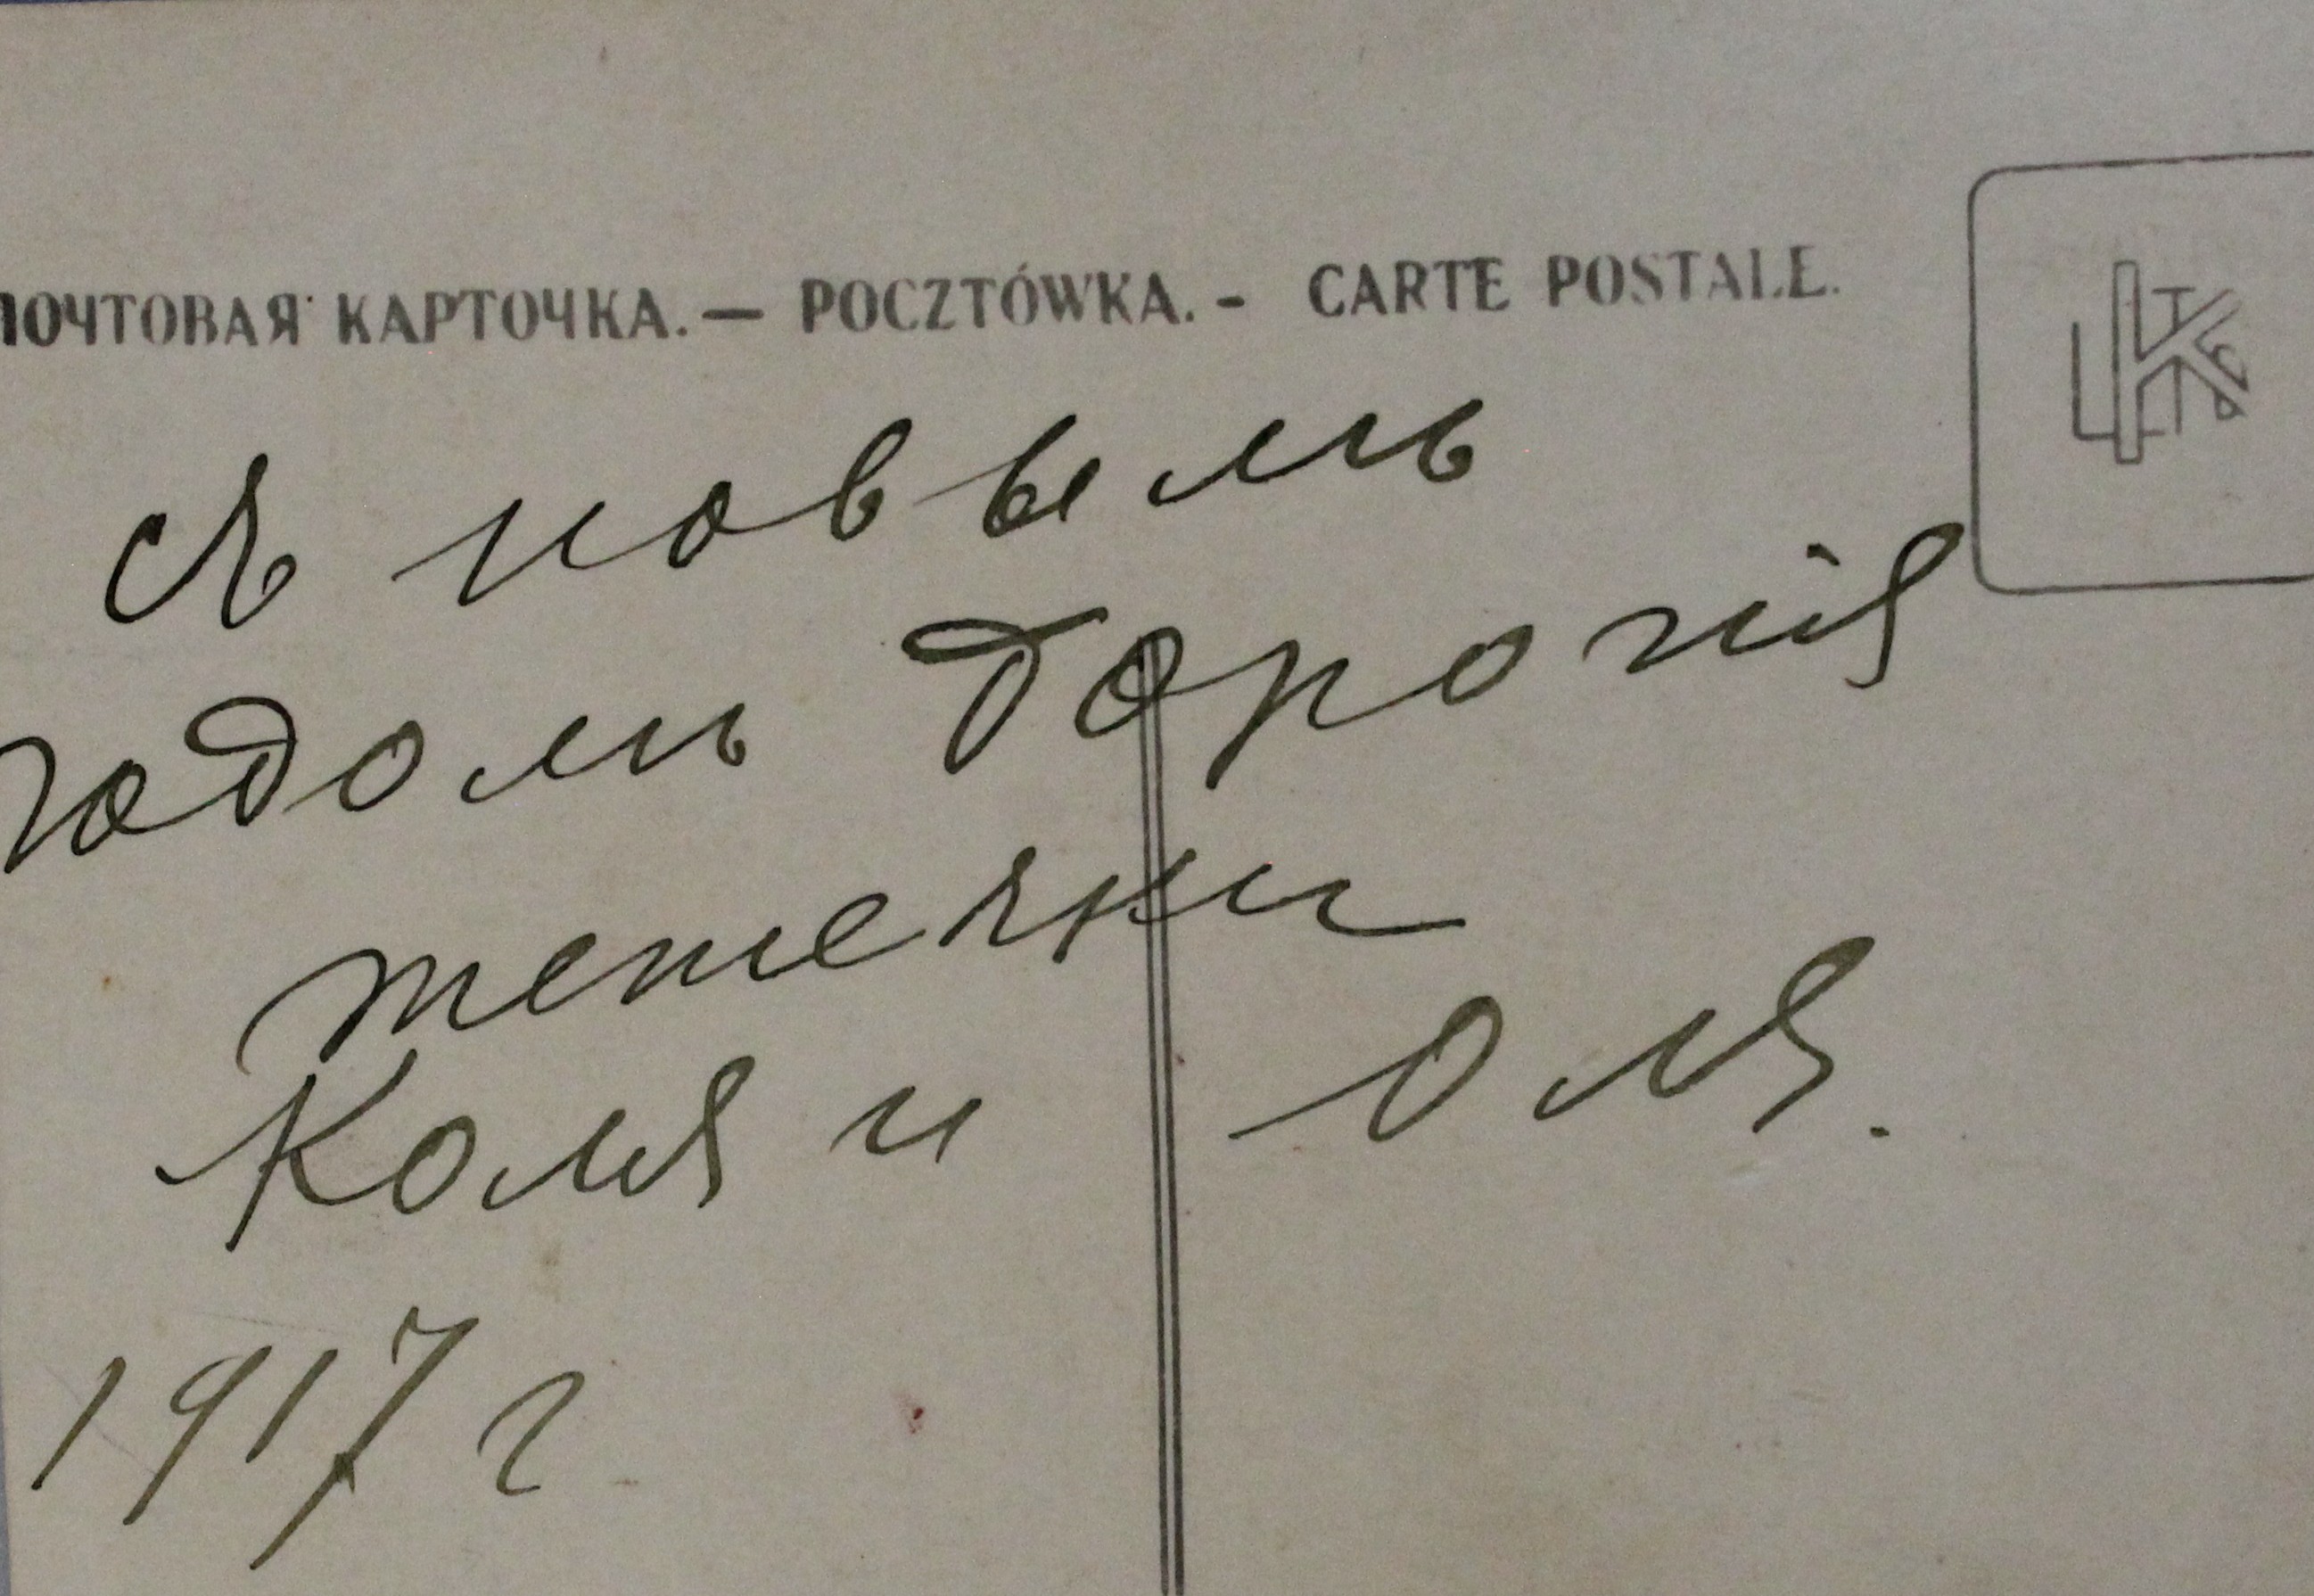 ПОЧТОВАЯ КАРТОЧКА. — POCZTÓWKA. - CARTE POSTALE.
съ новымъ
годомъ дорогія
тетечки
Коля и Оля.
1917 г